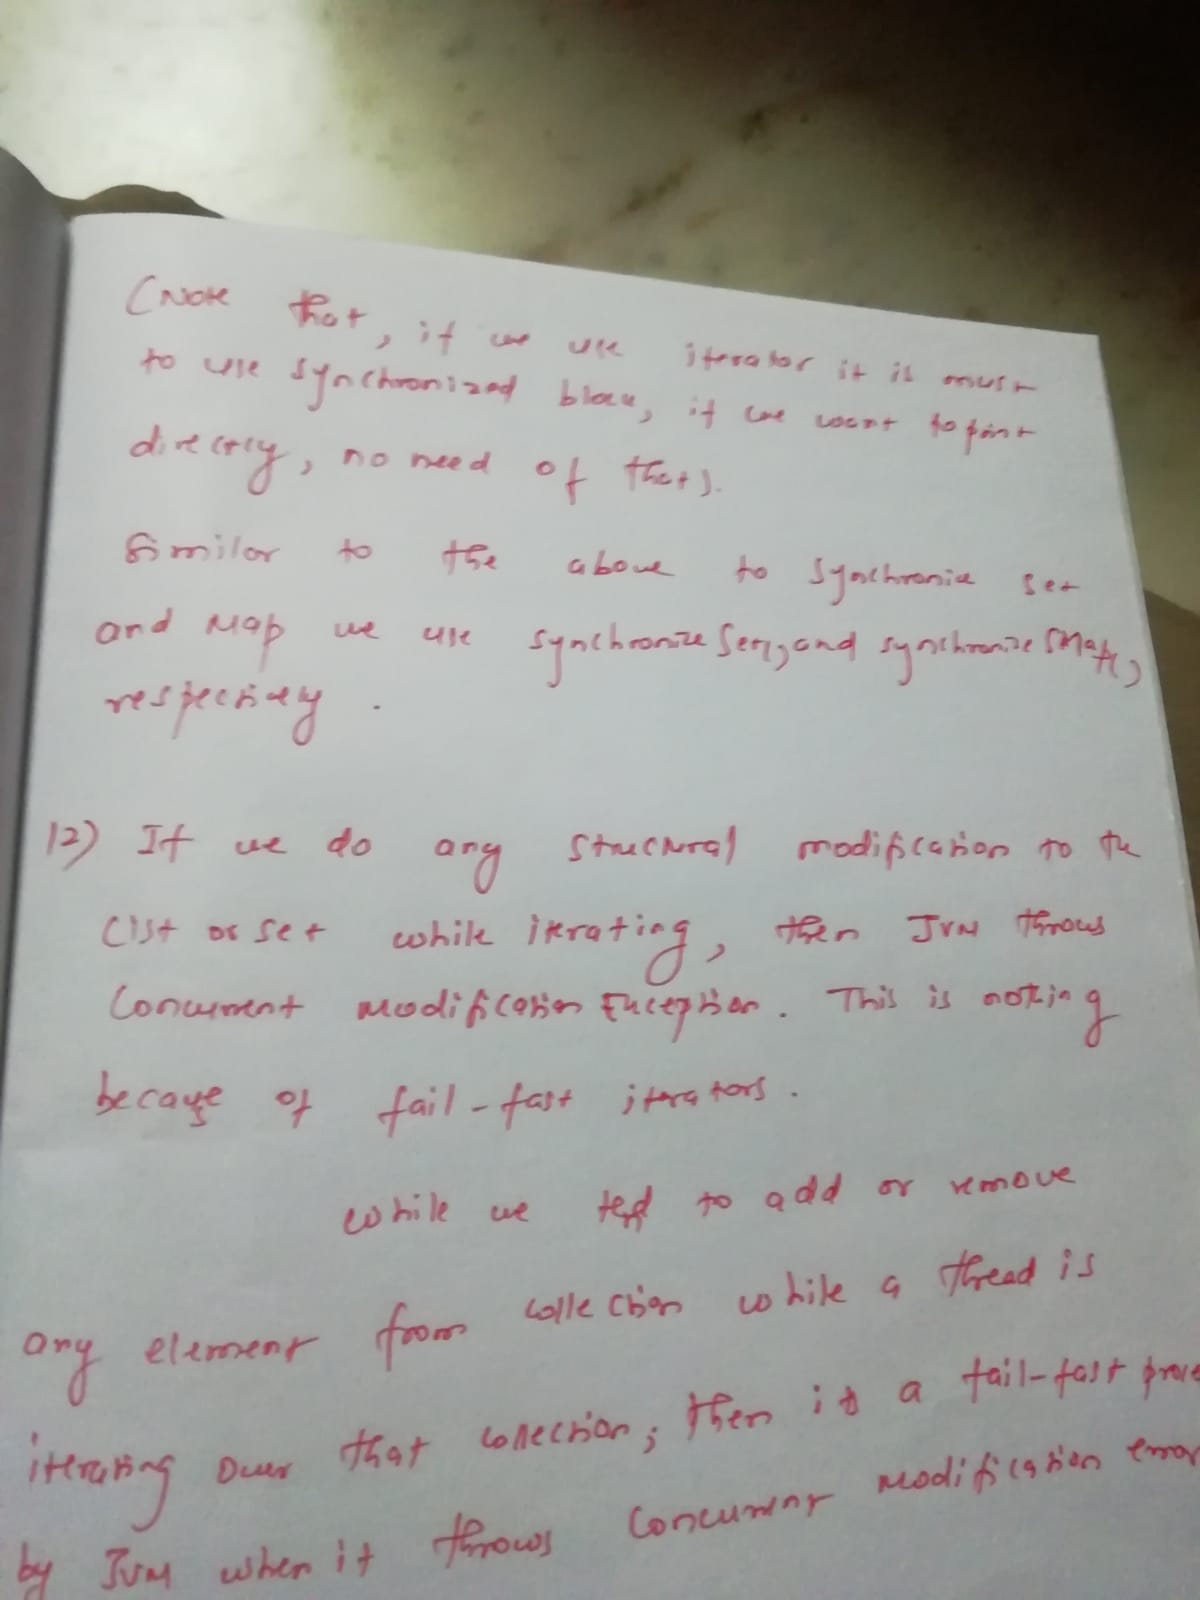 (Note that, if we use iterator it is must
to use synchronized block, if we want to print
directly, no need of that).
Similar to the above to synchronize set
and Map we use synchronize Set(), and synchronize Map(),
respectively.
12) If we do any structural modification to the
List or set while iterating, then JVM throws
Concurrent modification Exception. This is nothing
because of fail-fast iterators.
while we to add or remove
any element from collection while a thread is
iterating over that collection, then is a fail-fast
by JVM when it throws Concurrent modification error